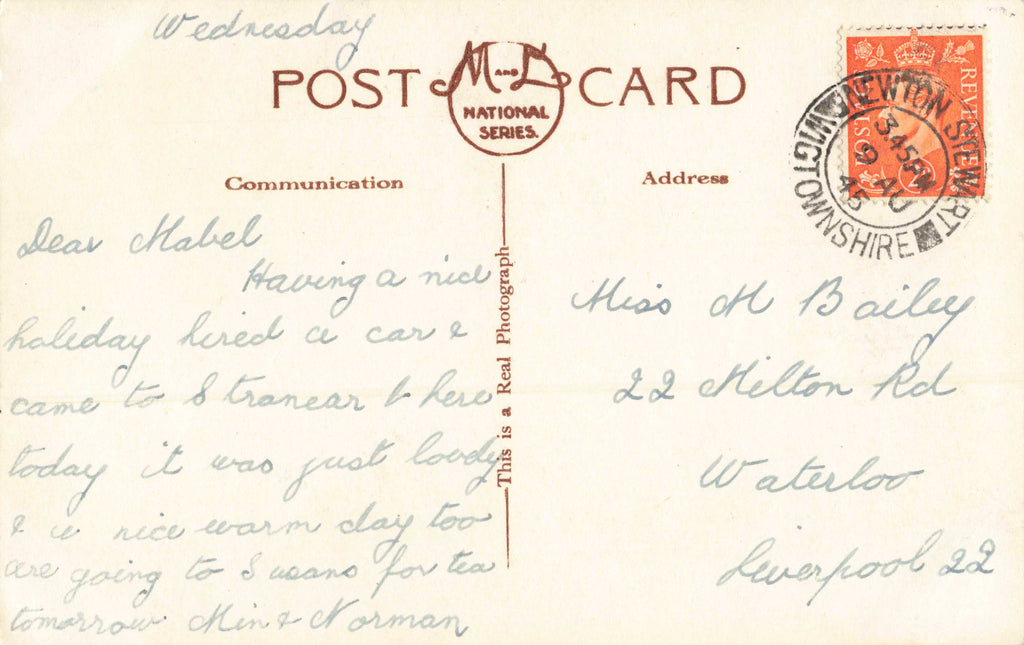 Wednesday
POST CARD
M AND L
NATIONAL
SERIES.
Communication
Address
NEWTON STEWART
WIGTOWNSHIRE
3.45PM
9 AU
45
REVENUE
This is a Real Photograph
Dear Mabel
Having a nice
holiday hired a car &
came to Stranear & here
today it was just lovely
& a nice warm day too
are going to Susans for tea
tomorrow Min & Norman
Miss M Bailey
22 Milton Rd
Waterloo
Liverpool 22